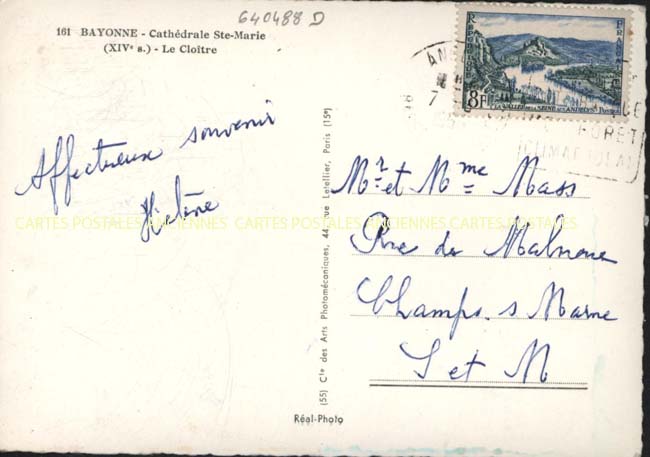 640488 D
161 BAYONNE - Cathédrale Ste-Marie
(XIVe s.) - Le Cloître
Affectueux souvenir
Hélène
CARTES POSTALES ANCIENNES CARTES POSTALES ANCIENNES CARTES POSTALES ANCIENNES
(55) Cie des Arts Photomécaniques, 44, rue Letellier, Paris (15e)
Réal-Photo
8F
LA VALLÉE DE LA SEINE AUX ANDELYS
POSTES
AN
7
FORET
CLIMAT IDEAL
Mr et Mme Mass
Rue de Malnoue
Champs s Marne
S et M